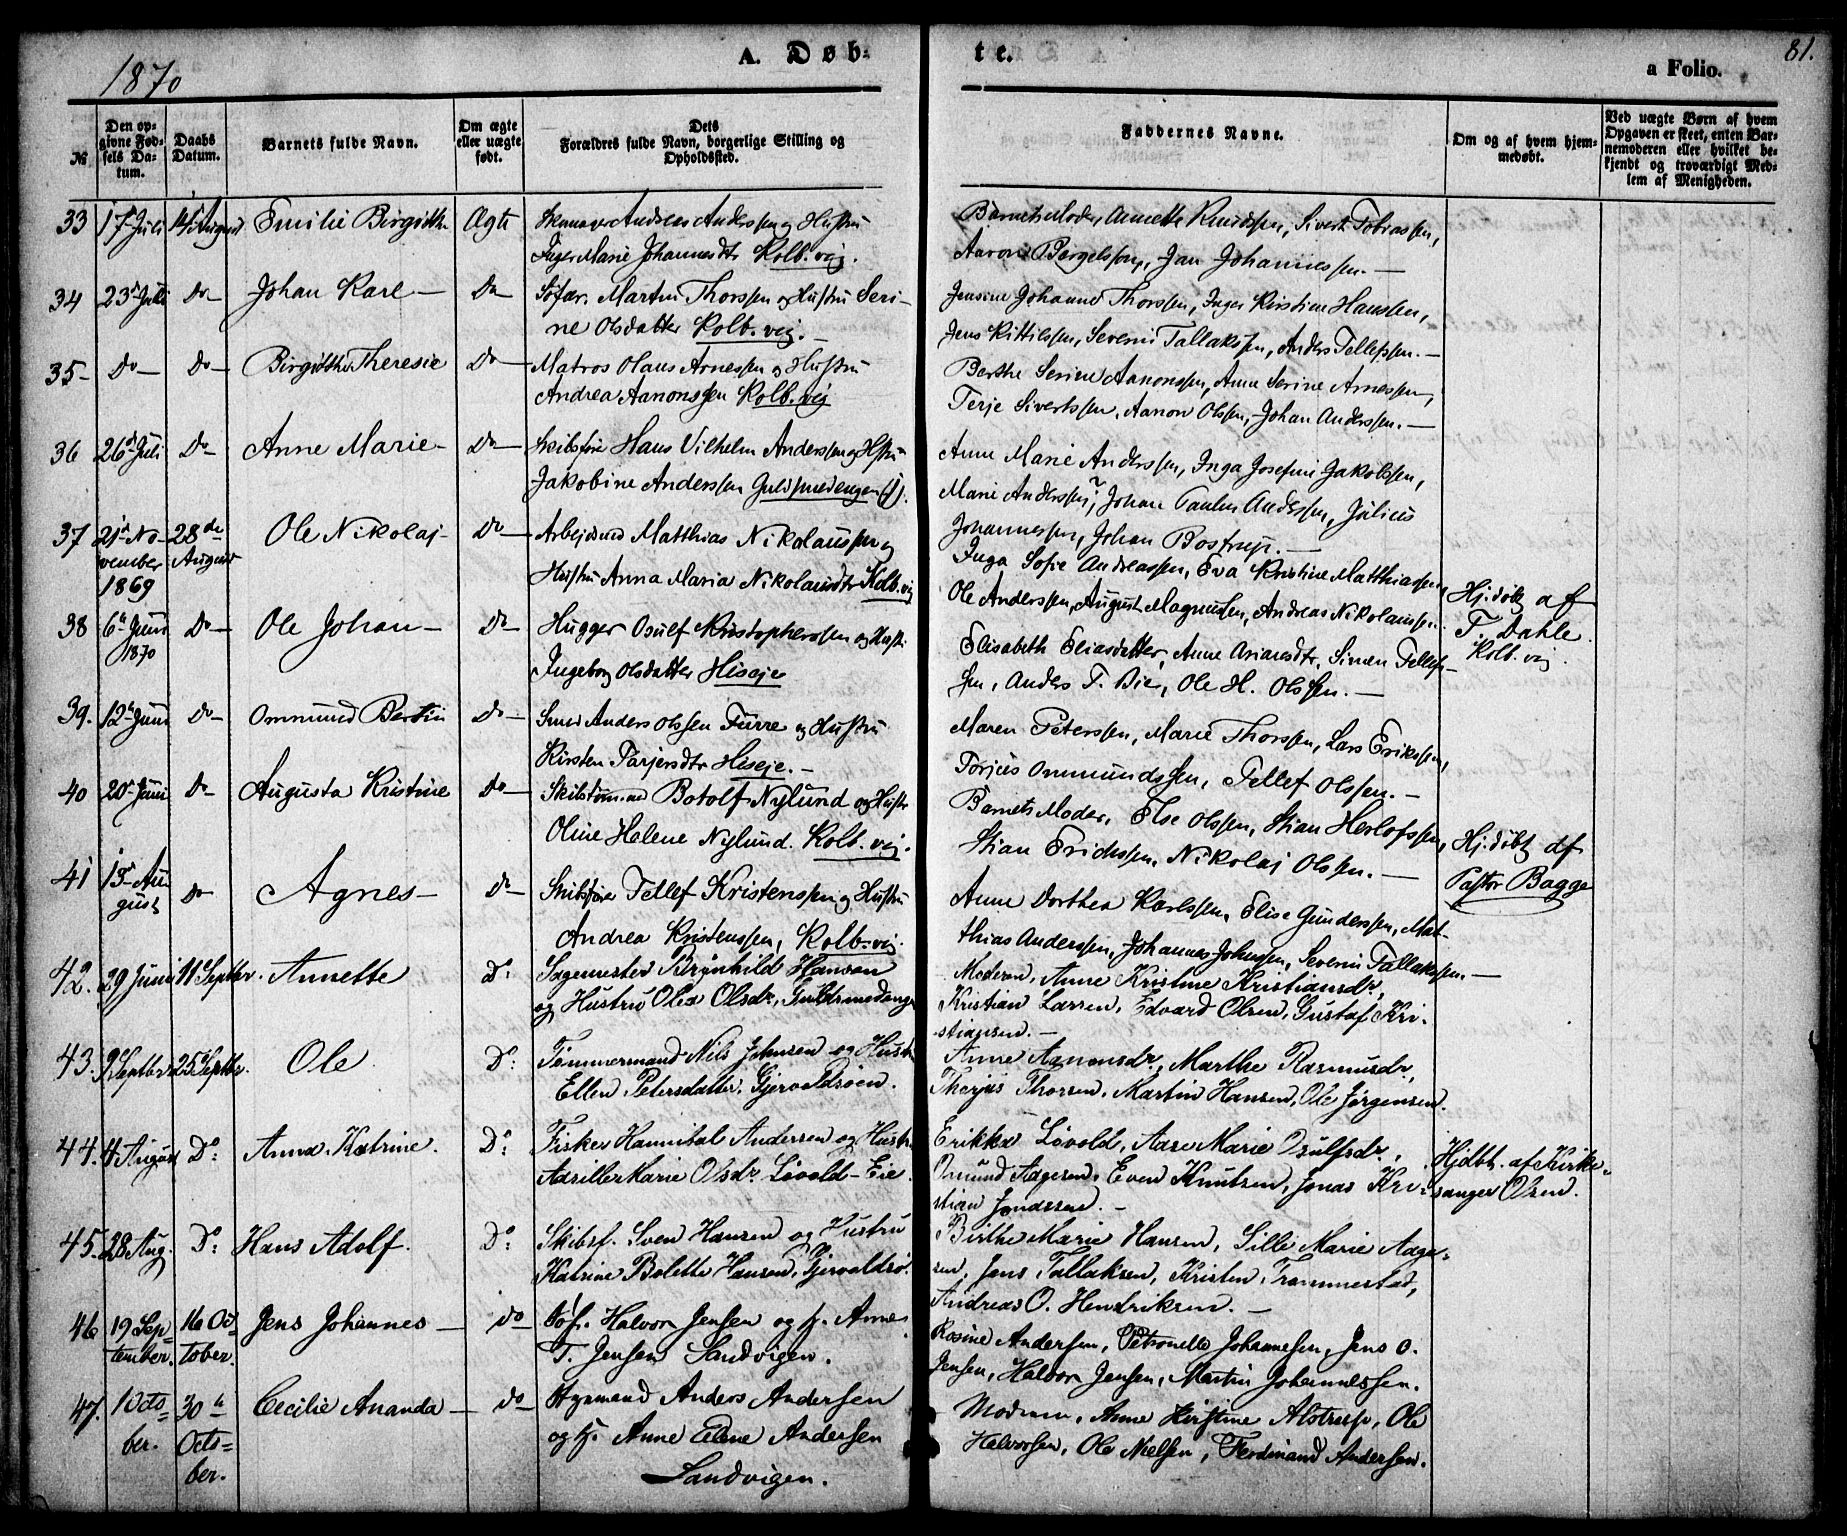 1870
A. Døb-
te.
a Folio.
81.
№
Den op-
givne Fød-
sels Da-
tum.
Daabs
Datum.
Barnets fulde Navn.
Om ægte
eller uægte
født.
Dets
Forældres fulde Navn, borgerlige Stilling og
Opholdssted.
Faddernes Navne.
Om og af hvem hjem-
medøbt.
Ved uægte Børn af hvem
Opgaven er skeet, enten Bar-
nemoderen eller hvilket be-
kjendt og troværdigt Med-
lem af Menigheden.
33 17 Juli 14 August Emilie Birgitthe Ægte Andreas Anderssen og Hustru
Inger Marie Johannesdtr Kolb.vig.
Barnets Moder, Annette Knudssen, Sivert Tobiassen,
Aaron Bergelssen, Jan Johannessen. —
34 23 Juli Do — Johan Karl — Do Søfar. Martin Thorssen og Hustru Seri-
ne Olsdatter Kolb.vig. —
Jensine Johanne Thorssen, Inger Kirstine Hanssen,
Jens Kittilssen, Severin Tallakssen, Anders Tellefssen. —
35 — Do — Do — Birgitthe Theresie Do — Matros Olaus Arnessen og Hustru
Andrea Aanonssen Kolb.vig
Berthe Serine Aanonssen, Anne Serine Arnessen,
Terje Sivertssen, Aanon Olssen, Johan Anderssen. —
36 26 Juli Do — Anne Marie — Do — Skibsfører Hans Vilhelm Anderssen og Hstru
Jakobine Anderssen Guldsmedengen (J).
Anne Marie Anderssen, Inga Josefine Jakobssen,
Marie Anderssen, Johan Paulus Anderssen, Julius
Johannessen, Johan Bostrup. —
37 21 No-
vember
1869
28de
August
Ole Nikolaj — Do — Arbejdsmd Matthias Nikolaussen og
Hustru Anna Maria Nikolausdtr Kolb.vig
Inga Sofie Andreassen, Eva Kristine Matthiassen,
Ole Anderssen, August Magnussen, Andreas Nikolaussen.
Hj.døbt af
T. Dahle
Kolb.vig.
38 6 Juni
1870
Do — Ole Johan — Do — Hugger Osulf Kristopherssen og Hustr.
Ingeborg Olsdatter Hiseje
Elisabeth Eliasdatter, Anne Arianedtr, Simen Tellef-
sen, Anders T. Bie, Ole H. Olssen. —
39. 12 Juni Do — Ommund Bertin Do — Smed Anders Olssen Furre og Hustru
Kirsten Tarjersdtr Hiseje. —
Maren Peterssen, Marie Thorssen, Lars Erikssen,
Torjus Ommundssen, Tellef Olssen. —
40 20 Juni Do — Augusta Kristine Do — Skibstømmd Botolf Nylund og Hustr
Oline Helene Nylund. Kolb.vig.
Barnets Moder, Else Olssen, Stian Herlofssen,
Stian Erichssen, Nikolaj Olssen. —
Hj.døbt af
Pastor Bagge
41 15 Au-
gust
Do — Agnes — Do — Skibsfører Tellef Kristenssen og Hustru
Andrea Kristenssen, Kolb.vig.
Anne Dorthea Karlssen, Elise Gunderssen, Mat-
thias Anderssen, Johannes Johnssen, Severin Tallakssen. —
42. 29 Juni 11 Septbr. Annette D°: Sagmester Brynhild Hanson
og Hustru Olea Olsdr., Guldsmedenge
Moderen, Anne Kristine Kristiansdr.,
Kristian Larsen, Edvard Olsen, Gustaf Kri-
stiansen. —
43. 9 Septbr 25 Septbr. Ole D°: Tømmermand Nils Johnsen og Hustr
Ellen Petersdatter, Gjervoldsøen.
Anne Aanonsdr., Marthe Rasmusdr.,
Therjus Thorsen, Martin Hansen, Ole Jørgensen.
44. 4 August D°: Anna Katrine. D°: Fisker Hannibal Andersen og Hustr
Adsille Marie Olsdr. Løvold-Eie.
Erikka Løvold, Aase Marie Osulfsdr.,
Omund Aagesen, Even Knutsen, Jonas Kri-
stian Jondssen. —
Hjdbt. af Kirke-
sanger Olsen.
45. 28 Aug. D°: Hans Adolf. D°: Skibsf. Sven Hansen og Hustru
Katrine Bolette Hansen, Gjervoldsø.
Birthe Marie Hansen, Sille Marie Aage-
sen, Jens Tallaksen, Kristen Trommestad,
Andreas O. Hendriksen. —
46 19 Sep-
tember.
16 Oc-
tober.
Jens Johannes — do — Søf. Halvor Jensen og H. Anne
T. Jensen Sandvigen.
Rosine Andersen, Petronelle Johannesen, Jens O.
Jensen, Halvor Jensen, Martin Johannessen.
47. 1 Octo-
ber.
30
Octo-
ber.
Cecilie Ananda — do — Styrmand Anders Andersen
og H. Anne Elene Andersen
Sandvigen.
Moderen, Anne Kirstine Alstrup, Ole
Halvorsen, Ole Nielsen, Ferdinand Andersen.